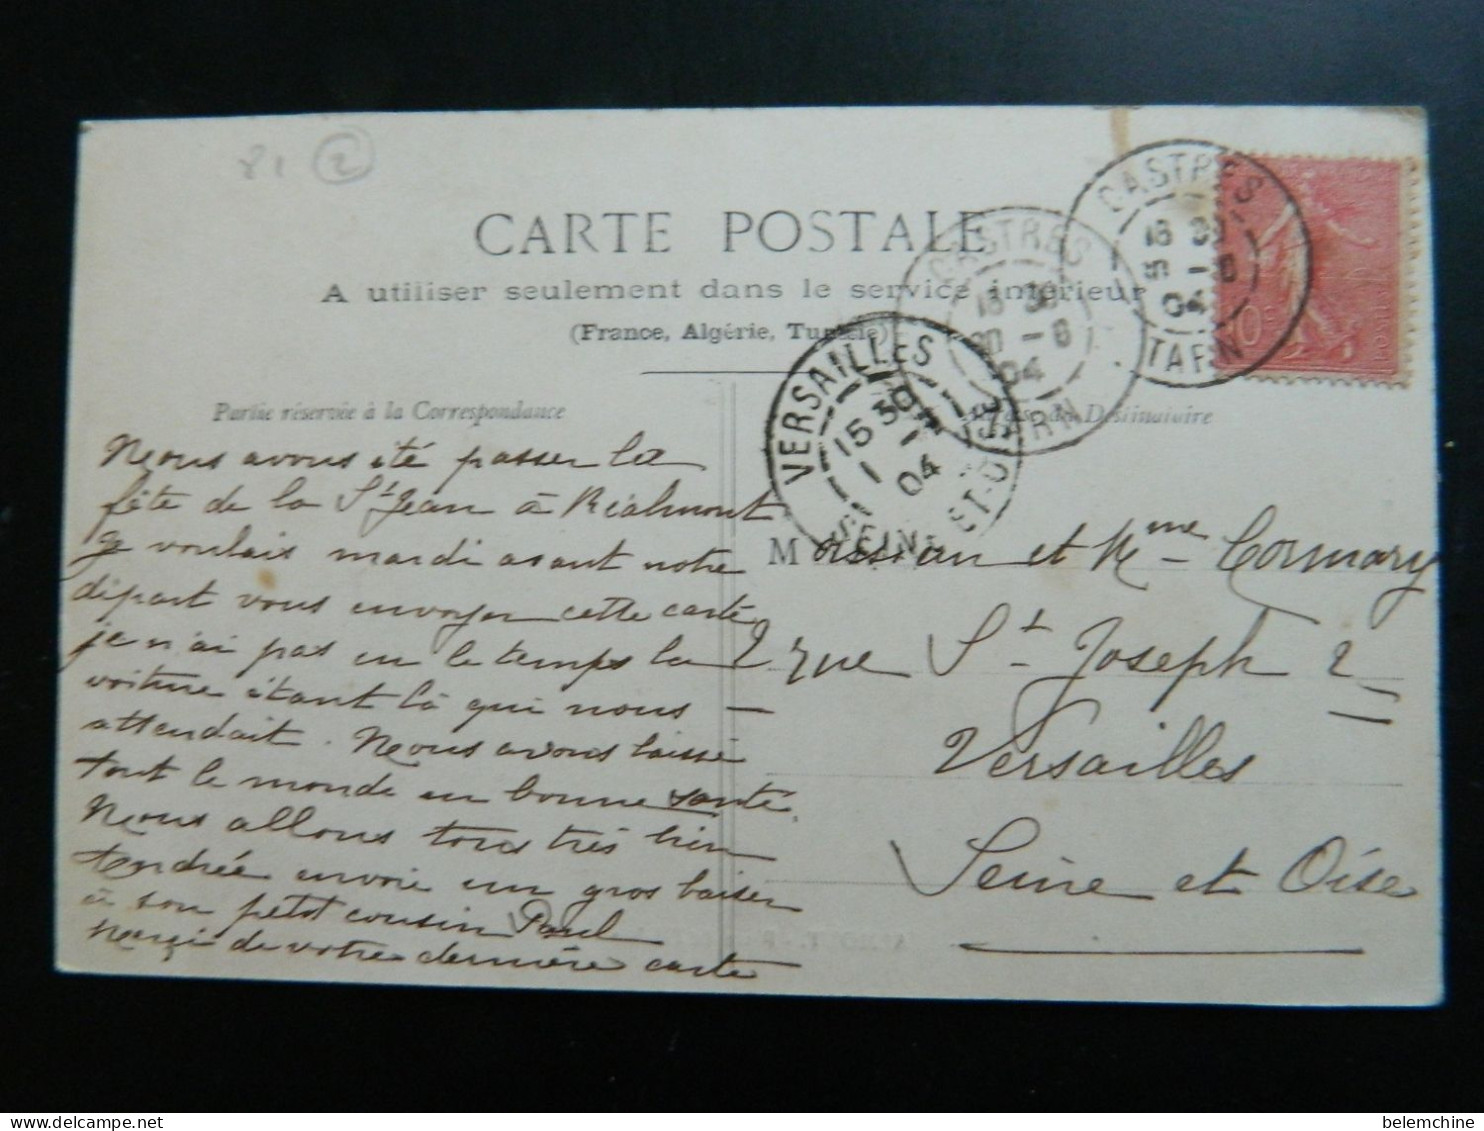 81 2
CARTE POSTALE
A utiliser seulement dans le service intérieur
(France, Algérie, Tunisie)
Partie réservée à la Correspondance
Adresse du Destinataire
CASTRES
04
TARN
CASTRES
04
TARN
VERSAILLES
15 30
04
SEINE-ET-OISE
Nous avons été passer la
fête de la St Jean à Réalmont
Je voulais mardi avant notre
départ vous envoyer cette carte
je n'ai pas eu le temps la
voiture étant là qui nous
attendait. Nous avons laissé
tout le monde en bonne santé.
Nous allons tous très bien
Andrée envoie un gros baiser
à son petit cousin Paul
Merci de votre dernière carte
Monsieur et Mme Cormary
2 rue St Joseph 2
Versailles
Seine et Oise
belemchine